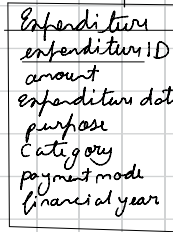 Expenditure
expenditureID
amount
Expenditure dat
purpose
Category
payment mode
financial year